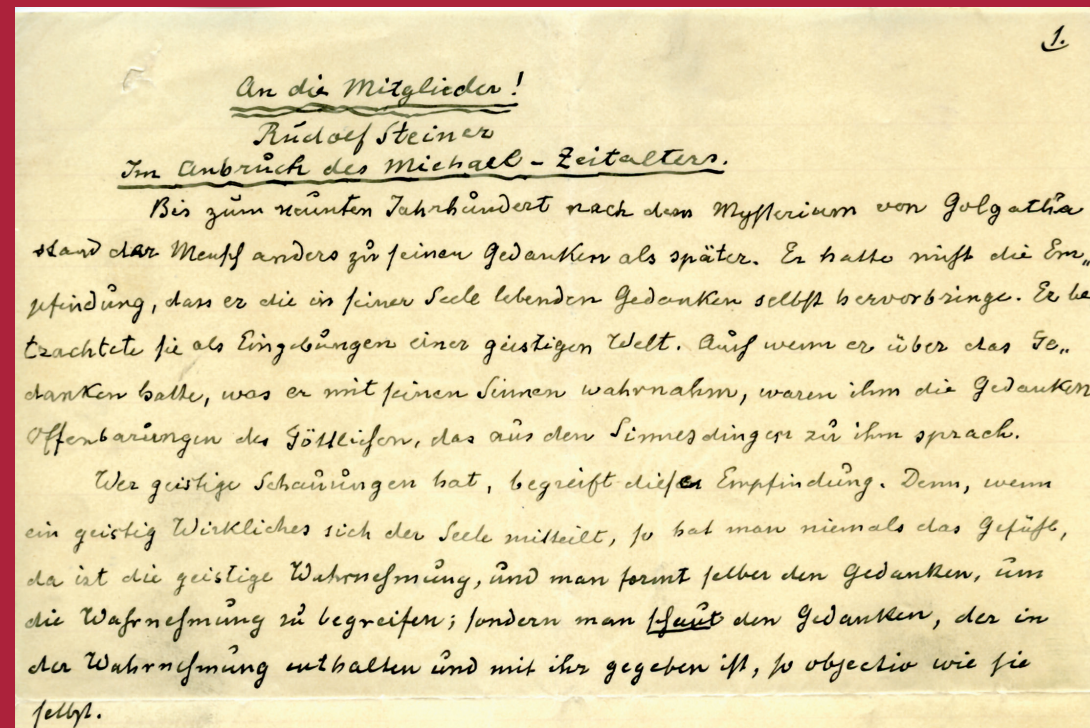 1.
An die Mitglieder!
Rudolf Steiner
Im Anbruch des Michael-Zeitalters.
Bis zum neunten Jahrhundert nach dem Mysterium von Golgatha
stand der Mensch anders zu seinen Gedanken als später. Er hatte nicht die Em„
pfindung, dass er die in seiner Seele lebenden Gedanken selbst hervorbringe. Er be
trachtete sie als Eingebungen einer geistigen Welt. Auch wenn er über das Ge„
danken hatte, was er mit seinen Sinnen wahrnahm, waren ihm die Gedanken
Offenbarungen des Göttlichen, das aus den Sinnesdingen zu ihm sprach.
Wer geistige Schauungen hat, begreift diese Empfindung. Denn, wenn
ein geistig Wirkliches sich der Seele mitteilt, so hat man niemals das Gefühl,
da ist die geistige Wahrnehmung, und man formt selber den Gedanken, um
die Wahrnehmung zu begreifen; sondern man schaut den Gedanken, der in
der Wahrnehmung enthalten und mit ihr gegeben ist, so objectiv wie sie
selbst.